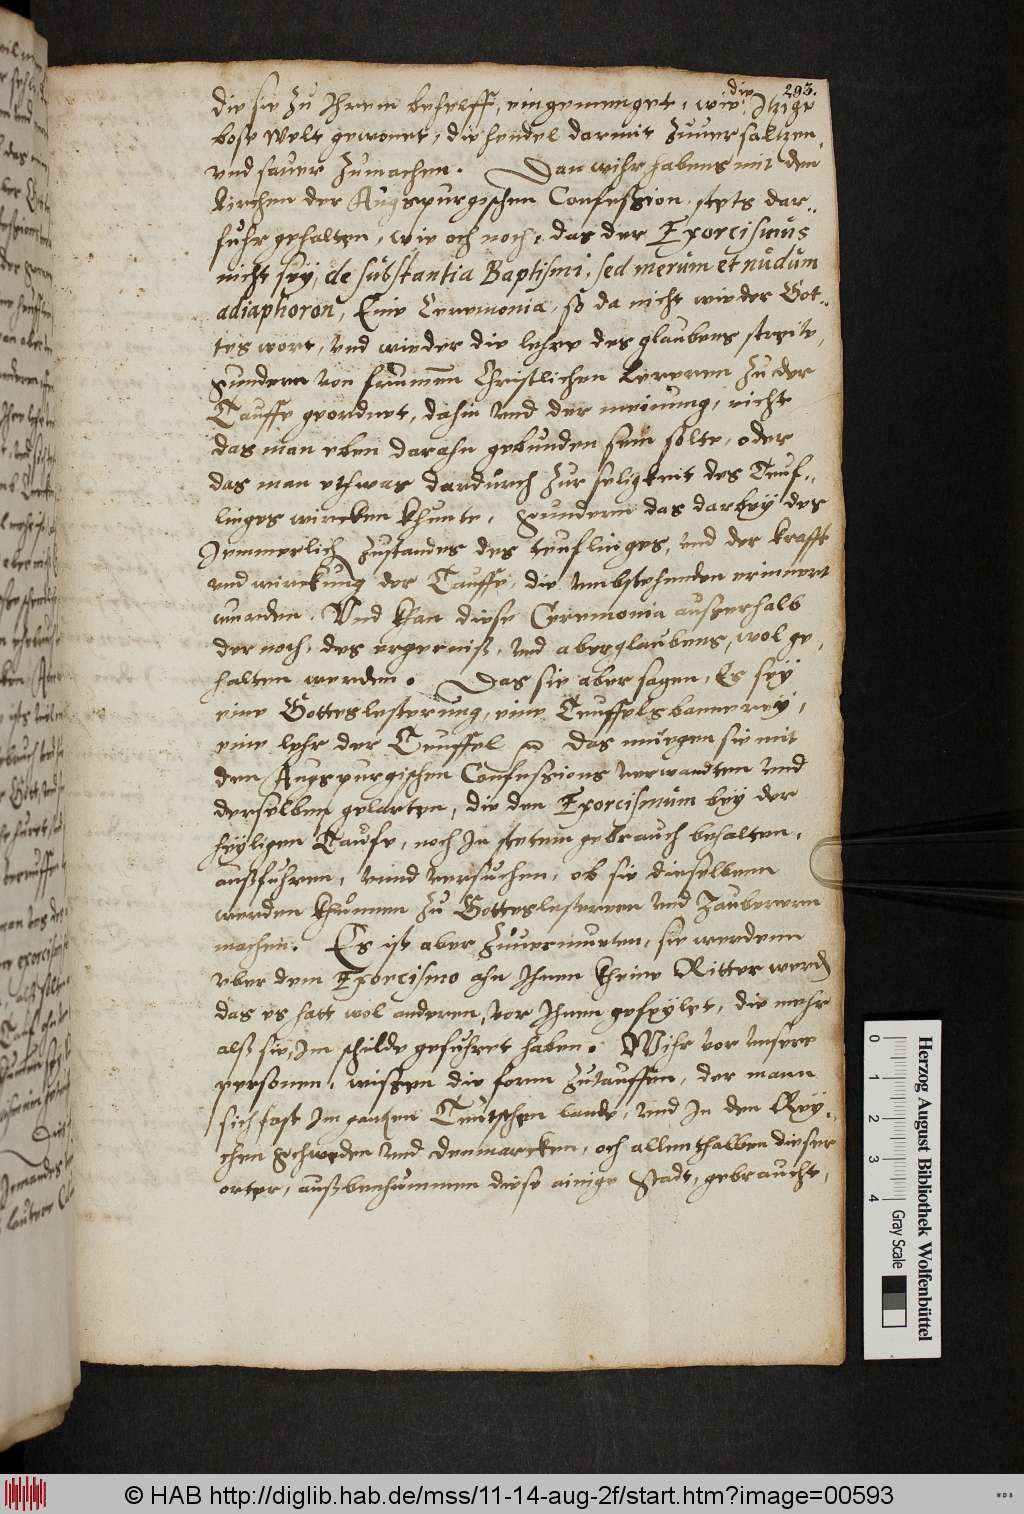 293.
die sie zu Ihrem behelff, eingemenget, wie die Itzige
bose welt gewonet, die hendel darmit zuuersaltzen
vnd sauer zumachen. Dan wihr habens mit den
kirchen der Augspurgischen Confession, stets dar-
fuhr gehalten, wie och noch, das der Exorcismus
nicht sey, de substantia Baptismi, sed merum et nudum
adiaphoron, Eine Ceremonia, so da nicht wieder Got-
tes wort, vnd wieder die lehre des glaubens streite,
sundern von frummen Christlichen Lereren zu der
Tauffe geordnet, dahin vnd der meinung, nicht
das man eben darahn gebunden sein solte, oder
das man ethwas dardurch zur seligkeit des Teuf-
linges wircken khunte, sundern das darbey des
Jemmerlich zustandes des teuflinges, vnd der krafft
vnd wirckung der Tauffe, die vmbstehenden erinnert
werden. Vnd khan diese Ceremonia ausserhalb
der noch, des ergerniß, vnd aberglaubens, wol ge-
halten werden. Das sie aber sagen, Es sey
eine Gotteslesterung, eine Teuffelsbannerey,
eine lehr der Teuffel das muegen sie mit
den Augspurgischen Confessions verwandten vnd
derselben gelarten, die den Exorcismum bey der
heyligen Taufe, noch In stetem gebrauch behalten,
außfuhren, vnnd versuchen, ob sie dieselbenn
werden khunnen zu Gotteslesteren vnd Zauberern
machen. Es ist aber zuuermuten, sie werdenn
vber dem Exorcismo ahn Ihnen kheine Ritter werd
das es hatt wol anderen, vor Ihnen gefeylet, die mehr
alß sie, Im schilde gefuhret haben. Wihr vor vnsere
personen, wissen die form zutauffen, der mann
sich fast Im gantzen Teutschen lande, vnd In den Rey-
chen Schweden vnd Denmarcken, och allenthalben dieser
orter, außbenhummen diese ainige Stadt, gebraucht,
Herzog August Bibliothek Wolfenbüttel
0 1 2 3 4
Gray Scale
© HAB http://diglib.hab.de/mss/11-14-aug-2f/start.htm?image=00593